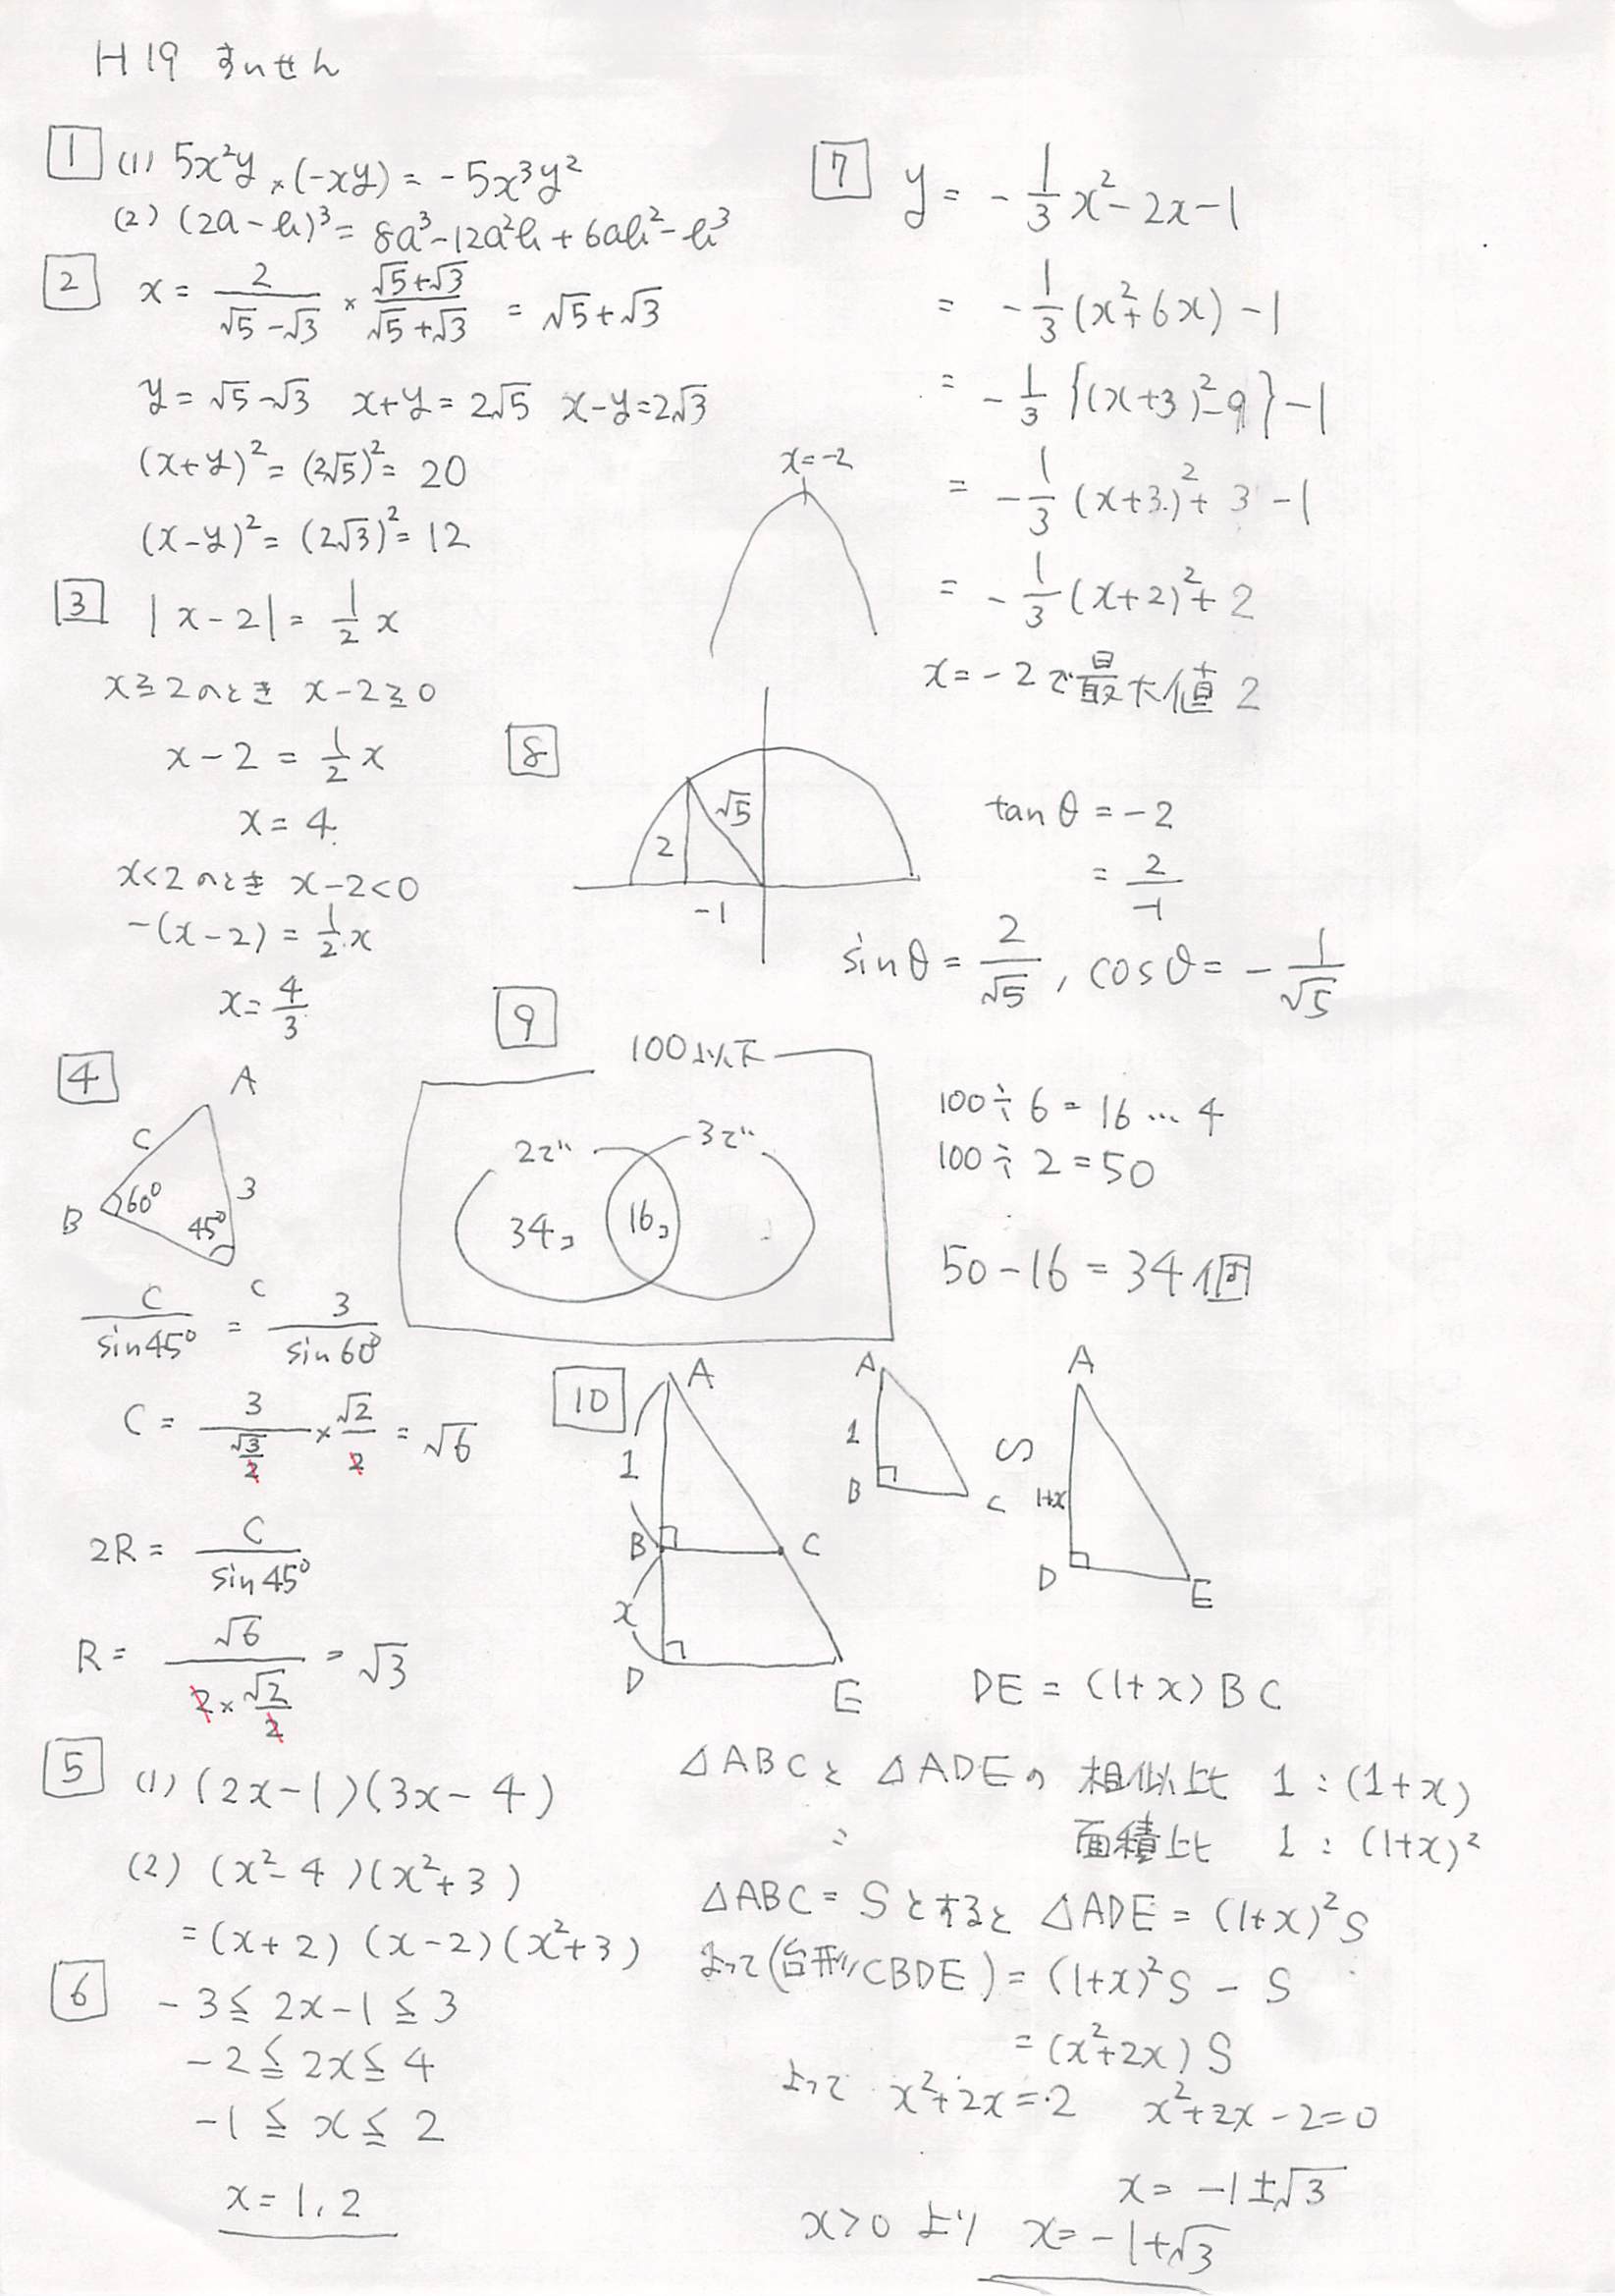 H19 すいせん
1 (1) 5x²y×(-xy)=-5x³y²
(2) (2a-b)³=8a³-12a²b+6ab²-b³
2 x=2/(√5-√3)×(√5+√3)/(√5+√3)=√5+√3
y=√5-√3 x+y=2√5 x-y=2√3
(x+y)²=(2√5)²=20
(x-y)²=(2√3)²=12
3 |x-2|=1/2 x
x≧2のとき x-2≧0
x-2=1/2 x
x=4
x<2のとき x-2<0
-(x-2)=1/2 x
x=4/3
4 A
C
B 60° 45° 3
C
C/sin45°=3/sin60°
C=3/(√3/2)×√2/2=√6
2R=C/sin45°
R=√6/(2×√2/2)=√3
5 (1) (2x-1)(3x-4)
(2) (x²-4)(x²+3)
=(x+2)(x-2)(x²+3)
6 -3≦2x-1≦3
-2≦2x≦4
-1≦x≦2
x=1,2
7 y=-1/3 x²-2x-1
=-1/3(x²+6x)-1
=-1/3{(x+3)²-9}-1
x=-2
=-1/3(x+3)²+3-1
=-1/3(x+2)²+2
x=-2で最大値2
8 √5
2
-1
tanθ=-2
=2/-1
sinθ=2/√5, cosθ=-1/√5
9 100以下
2で 3で
34コ 16コ
100÷6=16…4
100÷2=50
50-16=34個
10 A
1
B C
x
D E
A
1
B C
∽
A
1+x
D E
DE=(1+x)BC
△ABCと△ADEの相似比 1:(1+x)
〃 面積比 1:(1+x)²
△ABC=Sとすると△ADE=(1+x)²S
よって(台形CBDE)=(1+x)²S-S
=(x²+2x)S
よって x²+2x=2 x²+2x-2=0
x=-1±√3
x>0より x=-1+√3